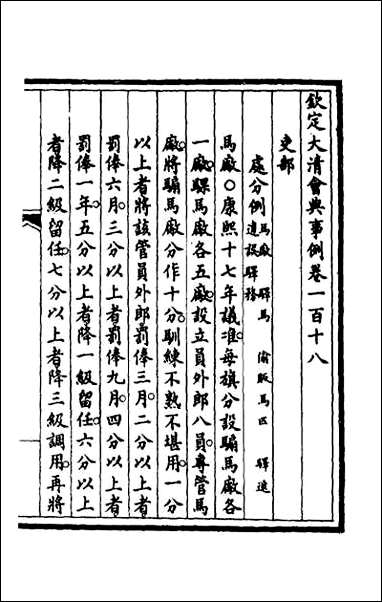 欽定大清會典事例卷一百十八
吏部
處分例馬廠 驛馬 偷販馬匹 驛遞
遞設驛務
馬廠○康熙十七年議准每旗分設騸馬廠各
一廠騍馬廠各五廠設立員外郎八員專管馬
廠將騸馬廠分作十分馴練不熟不堪用一分
以上者將該管員外郎罰俸三月二分以上者
罰俸六月三分以上者罰俸九月四分以上者
罰俸一年五分以上者降一級留任六分以上
者降二級留任七分以上者降三級調用再將